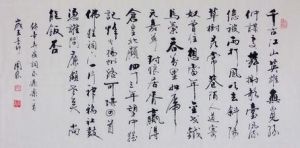 千古江山英雄無覓孫
仲謀處舞榭歌臺風流
總被雨打風吹去斜陽
想當年金戈鐵
馬氣吞萬里如虎
元嘉草草封狼居胥贏得
倉皇北顧四十三年望中猶
記烽火揚州路可堪回首
佛狸祠下一片神鴉社鼓
憑誰問廉頗老矣尚
能飯否